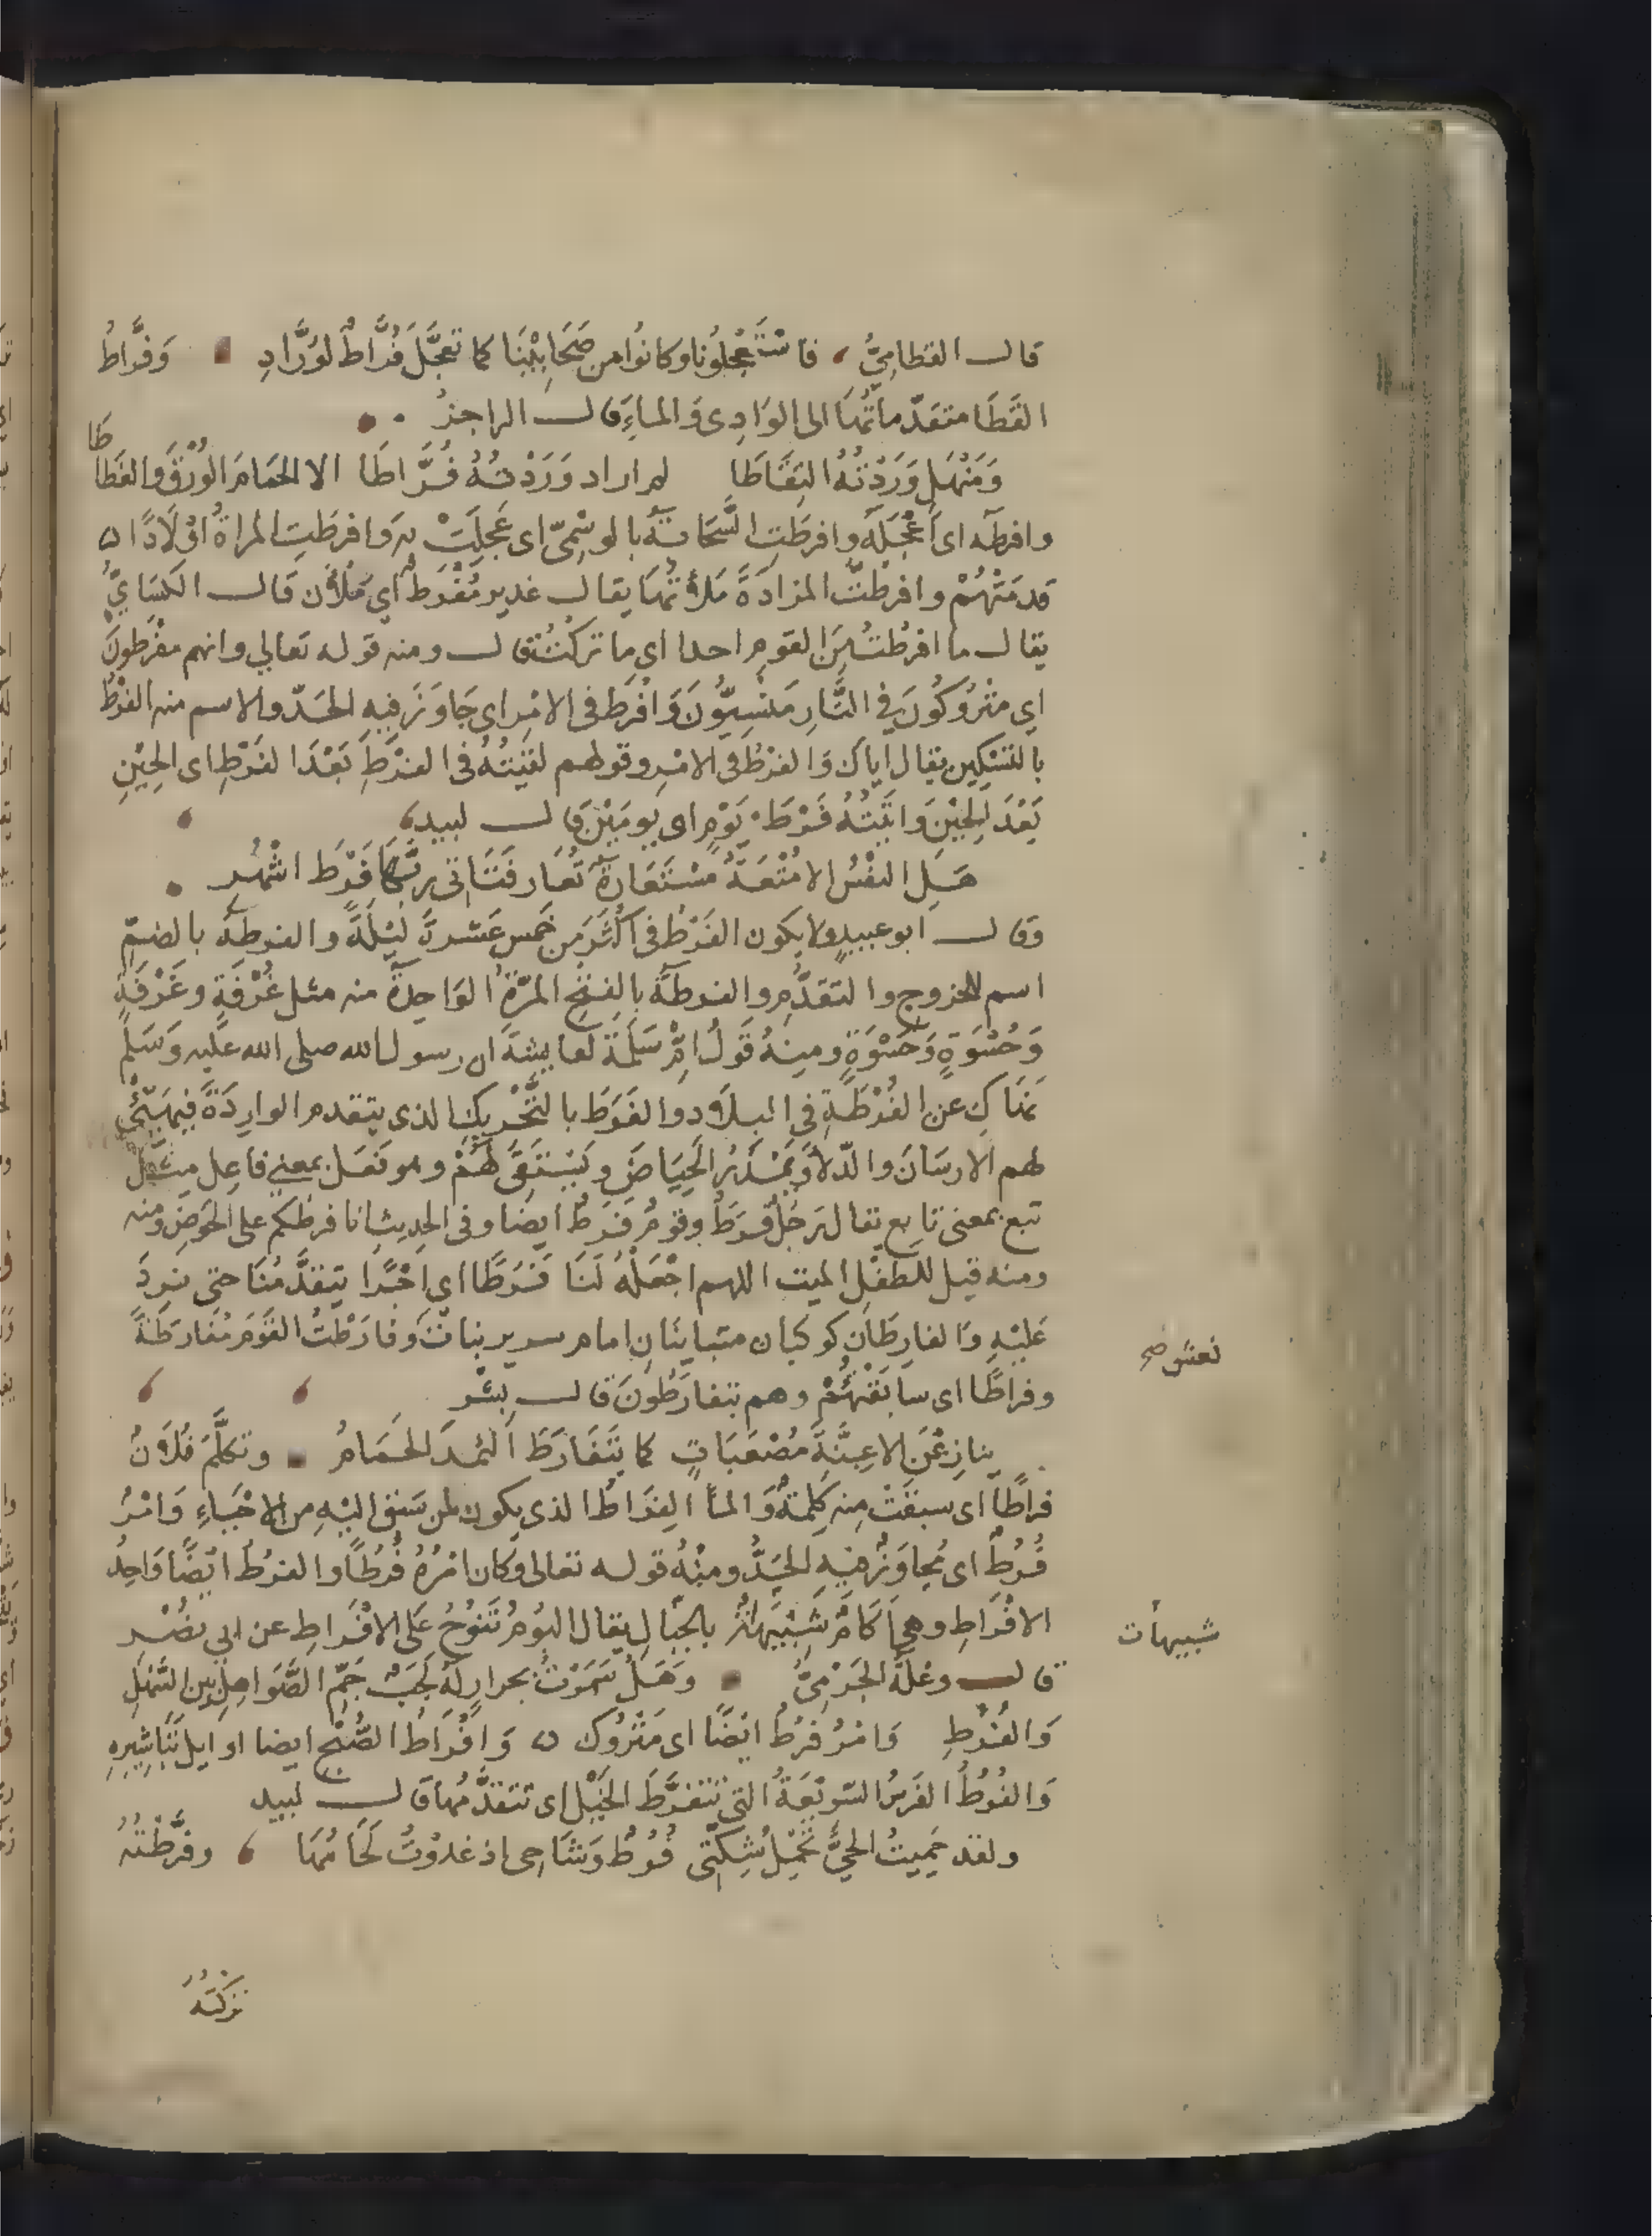 قال القطاميُّ، فاسْتَعْجلُونا وكانوُا من صَحَابِتْنَا كما تعجَّلَ فُرَّاطٌ لوُرَّادِ وَفُرَّاطُ
القَطَا متقدّماتُهَا الى الوَادِى وَالماءِ قال الراجزُ
وَمَنْهَلٍ وَرَدْتُهُ التِقَاطَا لم ار اد وَرَدْتُهُ فُرَّاطَا الا الحَمَامَ الوُرْقَ والغَطَاطَا
وافرطه اى اَعْجَلَه وافرطَتِ السَّحَابَةُ بالوسْمِىّ اى عَجِلَتْ به وافرطَتِ المراةُ اوْلَادًا
قدمَتْهُمْ وافرَطْتُ المزادَةَ مَلأتُهَا يقال غدير مُفْرَطٌ اي مَلْآن قَال الكسَايُّ
يقال ما افرَطْتُ مِنَ القومِ احدا اى ما تركْتُ قال ومنه قوله تعالي وانهم مفْرَطونَ
اي مَتْرُوكُونَ فِي النَّارِ مَنْسِيّونَ وَافْرَطَ فى الامْرِ اى جَاوَزَ فِيهِ الحَدّ والاسم منه الفَرْطُ
بالتسْكِين يقال اياكَ وَالفَرْطَ فى الامْرِ وقولهم لقيتُهُ فى الفَرْطِ بَعْدَ الفَرْطِ اى الحِيْنِ
بَعْدَ الحِيْنِ وَاتيْتُهُ فَرْطَ يَوْمٍ اى يومَيْنِ قال لبيد،
هَلِ النفْسُ الا مُتْعَةٌ مسْتَعَارةٌ تُعَار فَتَاتى ربَّهَا فَرْطَ اشْهُرِ
وقال ابو عبيدٍ ولا يكون الفَرْطُ فى اكْثَرَ من خَمس عَشرةَ لَيْلَةً والفرطة بالضمّ
اسم للخروج والتقدُّمِ والفرطَةُ بِالفتْحِ المرّةُ الوَاحِدةُ منه مثل غُرْفَةٍ وغَرْفَةٍ
وَحُسْوَةٍ وَحَسْوَةٍ ومنهُ قَوْلُ امِّ سَلَمَةَ لعايشةَ ان رسول الله صلى الله عَليه وَسَلم
نَهَاكِ عن الفُرْطَةِ فى البلَاد والفَرَطَ بالتَّحْرِيكِ الذى يتقدم الوارِدَةَ فيهَيِّئُ
لهم الارسَانَ والدّلاَءَ وَيَمْدُرُ الحِيَاضَ ويَسْتَقِى لَهُمْ وهو فَعَل بمعنى فَاعِل مِثْل
تبع بمعنى تابع يقال رَجُلٌ فَرَطٌ وقومٌ فَرَطٌ ايضا وفى الحديث انا فرطكم على الحَوْضِ ومنه
ومنه قيل للطفْلِ الميت اللهم اجْعَلْهُ لَنَا فَرَطًا اى اجْرًا يتقدَّمُنَا حتى نرِدَ
عَليْهِ وَالفارِطَانِ كوكبان متباينَانِ امام سرير بنات وفَارَطْتُ القَوْمَ مُفَارَطَةً
نعش صح
وفراطًا اى سابَقْتُهُمْ وهم يتفارَطُونَ قال بشْر
ينازعْنَ الاعِنَّةَ مُصْغيَاتٍ كما يَتَفَارَطَ الثمدَ الحَمَامُ وتكلَّمَ فُلاَنٌ
فراطًا اى سبقَتْ مِنه كِلمةٌ وَالماُ الفِرَاطُ الذى يكون لمن سَبَقَ اليْهِ من الاحْيَاءِ وَامْرٌ
فُرُطٌ اى مُجَاوَزٌ فيهِ الحَدُّ ومنْهُ قوله تعالى وكان امْرُهُ فُرُطًا والفرْطُ ايْضًا وَاحِدُ
الافْرَاطِ وهي آكَامٌ شَبِيْهَاتٌ بالجبَالِ يقال البُومُ تَنوُحُ عَلَى الافْرَاطِ عن ابي نصْر
شبيهات
قال وعْلَةُ الجَرْمِىُّ وَهَلْ سَمَوْتُ بجرارٍ لهُ لَجَبٌ جَمِّ الصَّوَاهِلِ بين السَّهْلِ
وَالفُرُطِ وَامْرٌ فرُطٌ ايْضًا اى مَتْرُوك وَافْرَاطُ الصُّبْحِ ايضا اوايل تَبَاشِيرِهِ
وَالفُرُطُ الفَرسُ السّرِيْعَةُ التى تتفَرَّطُ الخَيْلَ اى تتقَدَّمُها قال لبيد
ولقد حَمِيتُ الحيَّ تَحْمِلُ شِكتِّى فُرُطٌ وِشَاحِى اذ غدوْتُ لجَامُهَا، وفرَّطْتُهُ
تركتهُ